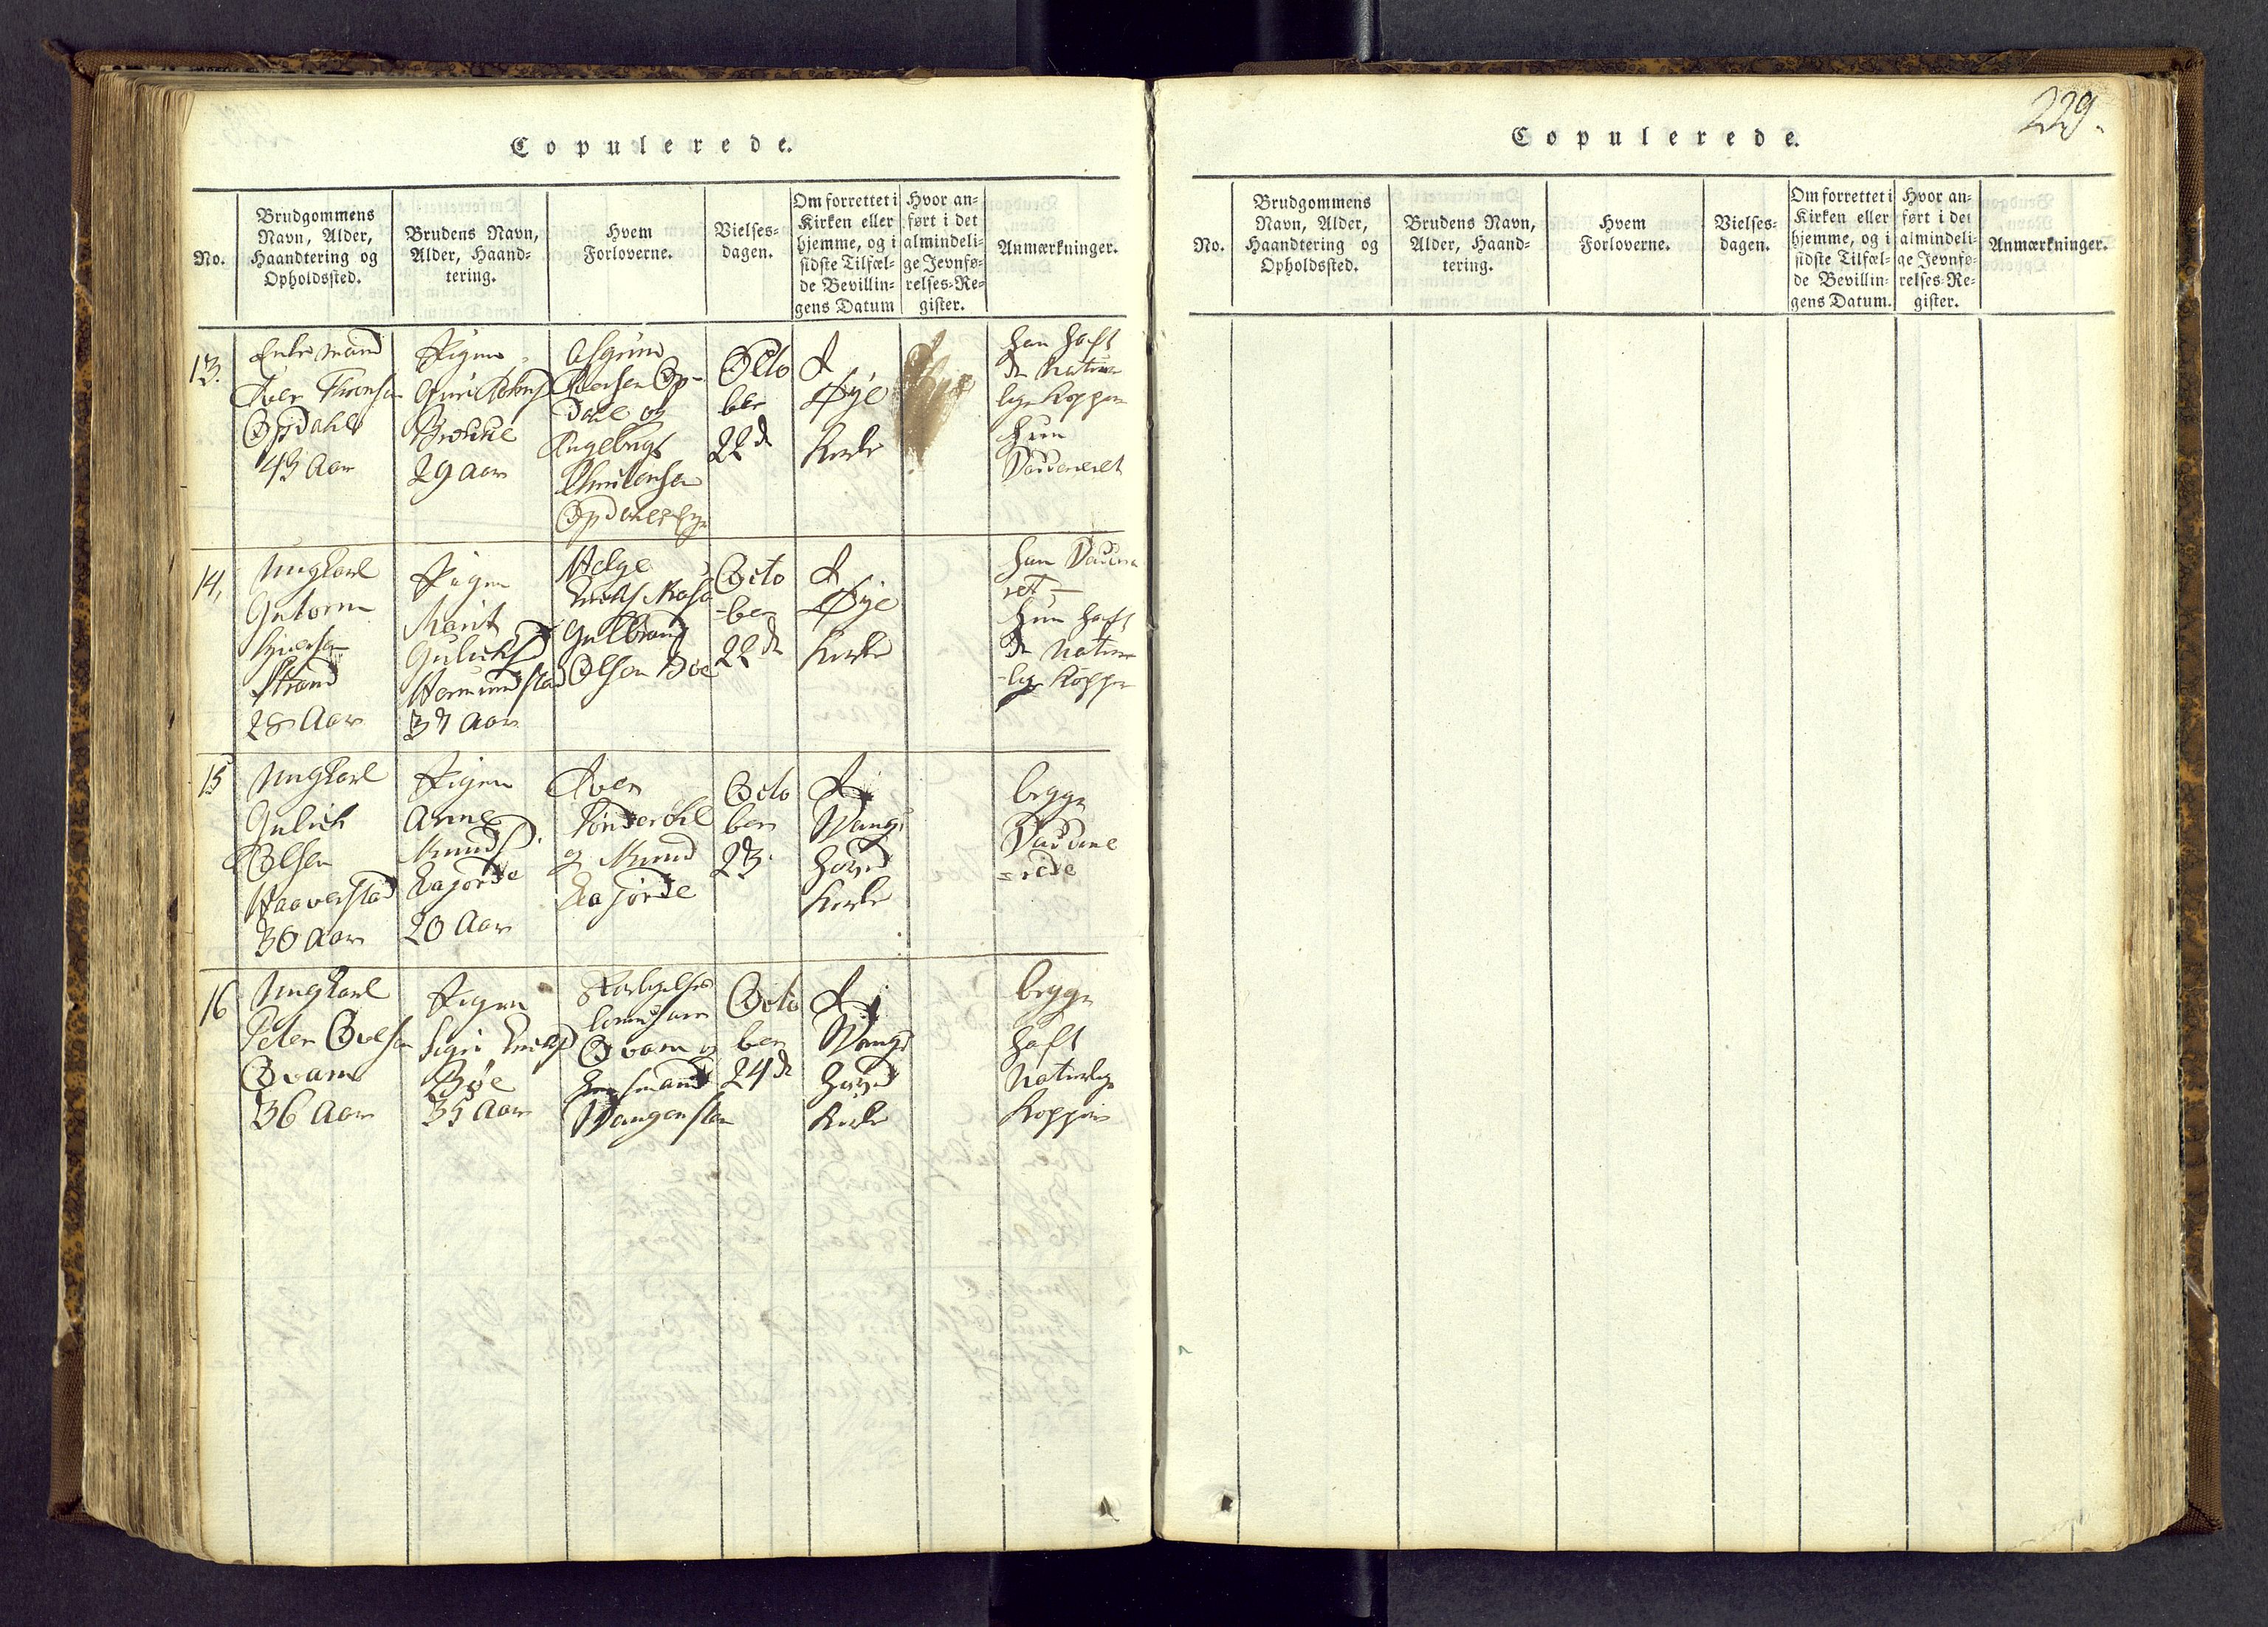 Copulerede.
No.
Brudgommens
Navn, Alder,
Haandtering og
Opholdssted.
Brudens Navn,
Alder, Haand-
tering.
Hvem
Forloverne.
Vielses-
dagen.
Om forrettet i
Kirken eller
hjemme, og i
sidste Tilfæl-
de Bevillin-
gens Datum
Hvor an-
ført i det
almindeli-
ge Jevnfø-
relses-Re-
gister.
Anmærkninger.
13.
Enkemand
Iver Thronsen
Opdahl
43 Aar
Pigen
29 Aar
Asgrim
Iversen Op-
dale og
Christensen
Octo
ber
22d
I
Øye
Kirke
han haft
de natur
lige Kopper
hun
Vaccineret
14,
Ungkarl
Gutorm
Strand
28 Aar
Pigen
Marit
Gulichsd
Hermundstad
37 Aar
Helge
Gulbrand
Olsen Böe
Octo
-ber
22d
I
Øye
Kirke
han Vaccine
ret —
hun haft
de natur
-lige Kopper
15
Ungkarl
Gulich
Olsen
Haaverstad
30 Aar
Pigen
Anne
Knudsd.
Lajorde
20 Aar
Iver
og Knud
Lajorde
Octo
ber
23.
I
Wangs
hoved
Kirke
begge
Vaccine
=rede
16
Ungkarl
Peter Ovesen
Qvam
36 Aar
Pigen
Sigri Erichsd
Bøe
35 Aar
Qvam og
Wangensten
Octo
ber
24d
I
Wangs
hoved
Kirke
begge
haft
naturlige
Kopper
229.
Copulerede.
No.
Brudgommens
Navn, Alder,
Haandtering og
Opholdssted.
Brudens Navn,
Alder, Haand-
tering.
Hvem
Forloverne.
Vielses-
dagen.
Om forrettet i
Kirken eller
hjemme, og i
sidste Tilfæl-
de Bevillin-
gens Datum.
Hvor an-
ført i det
almindeli-
ge Jevnfø-
relses-Re-
gister.
Anmærkninger.